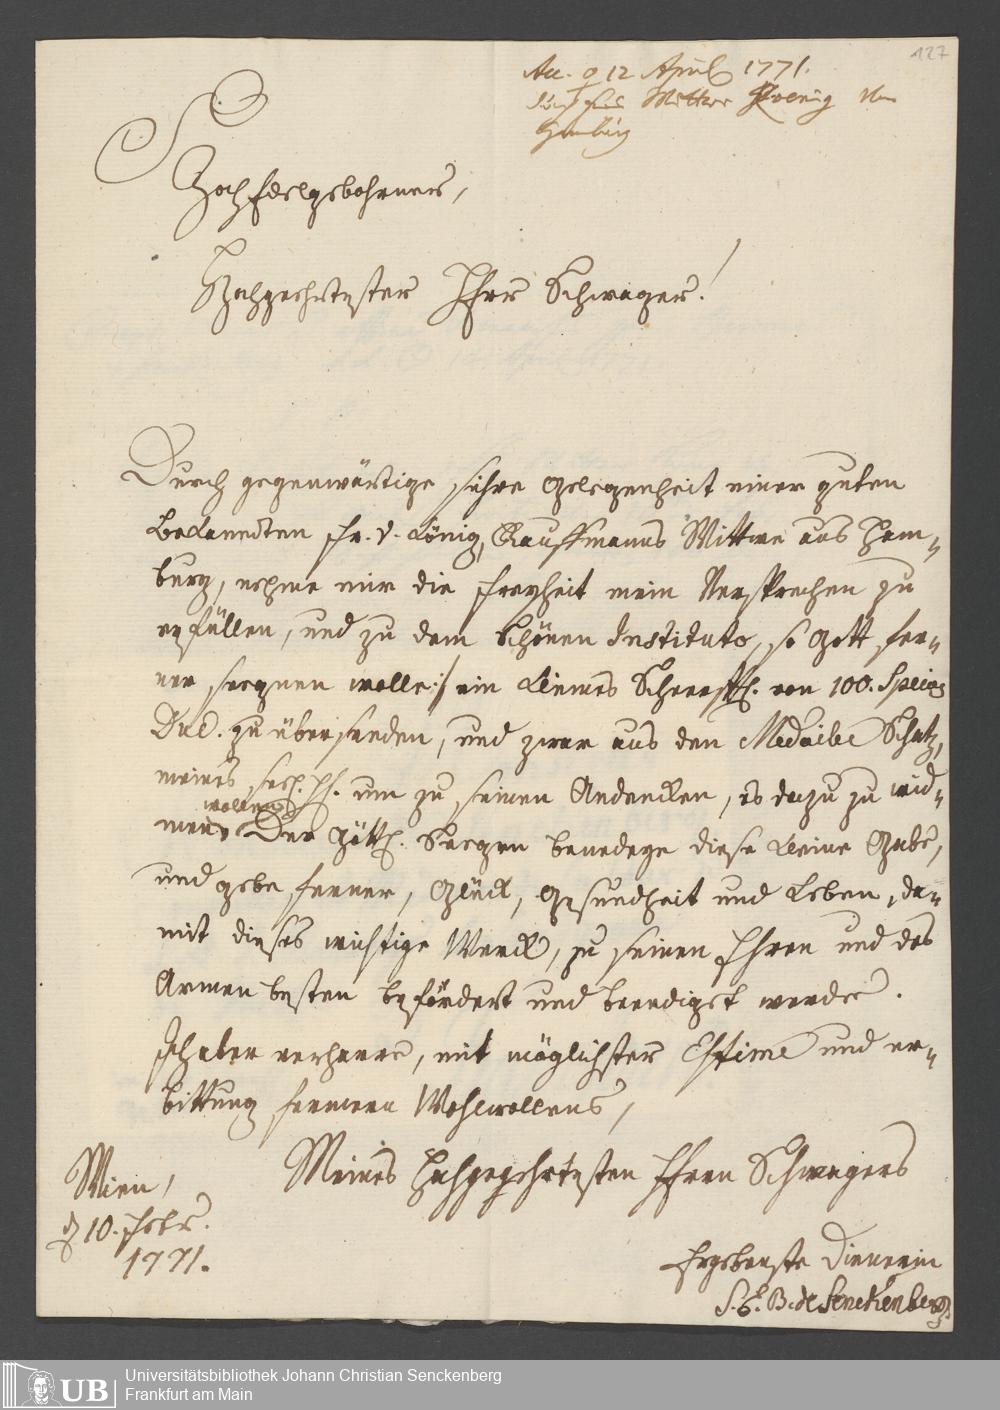 127
Acc. d 12 April 1771.
durch Frau Wittwe Koenig von
Hamburg
HochEdelgebohrner,
Hochgeehrtester Herr Schwager!
Durch gegenwärtige sichre Gelegenheit einer guten
bekannten Fr. v. König, Kauffmanns Wittwe aus Ham-
burg, nehme mir die Freyheit mein Versprechen zu
erfüllen, und zu dem schönen Instituto, so Gott fer-
ner seegnen wolle :/ ein kleines Scherffl. von 100. Species
Duc. zu übersenden, und zwar aus den Medaille Schatz,
meines seel. H. um zu seinen Andencken, es dazu zu wid-
wollen
men Der Göttl. Seegen benedeye diese kleine Gabe,
und gebe ferner, Glück, Gesundheit und Leben, da-
mit dieses wichtige Werck, zu seinen Ehren und des
Armen besten befördert und beendiget werde.
Ich aber verharre, mit möglichster Estime und er-
bittung fernern Wohlwollens,
Meines Hochgeehrtesten Herrn Schwagers
Wien,
d 10. Febr.
1771.
Ergebenste Dienerin
S. E. B. de Senckenberg
UB
Universitätsbibliothek Johann Christian Senckenberg
Frankfurt am Main